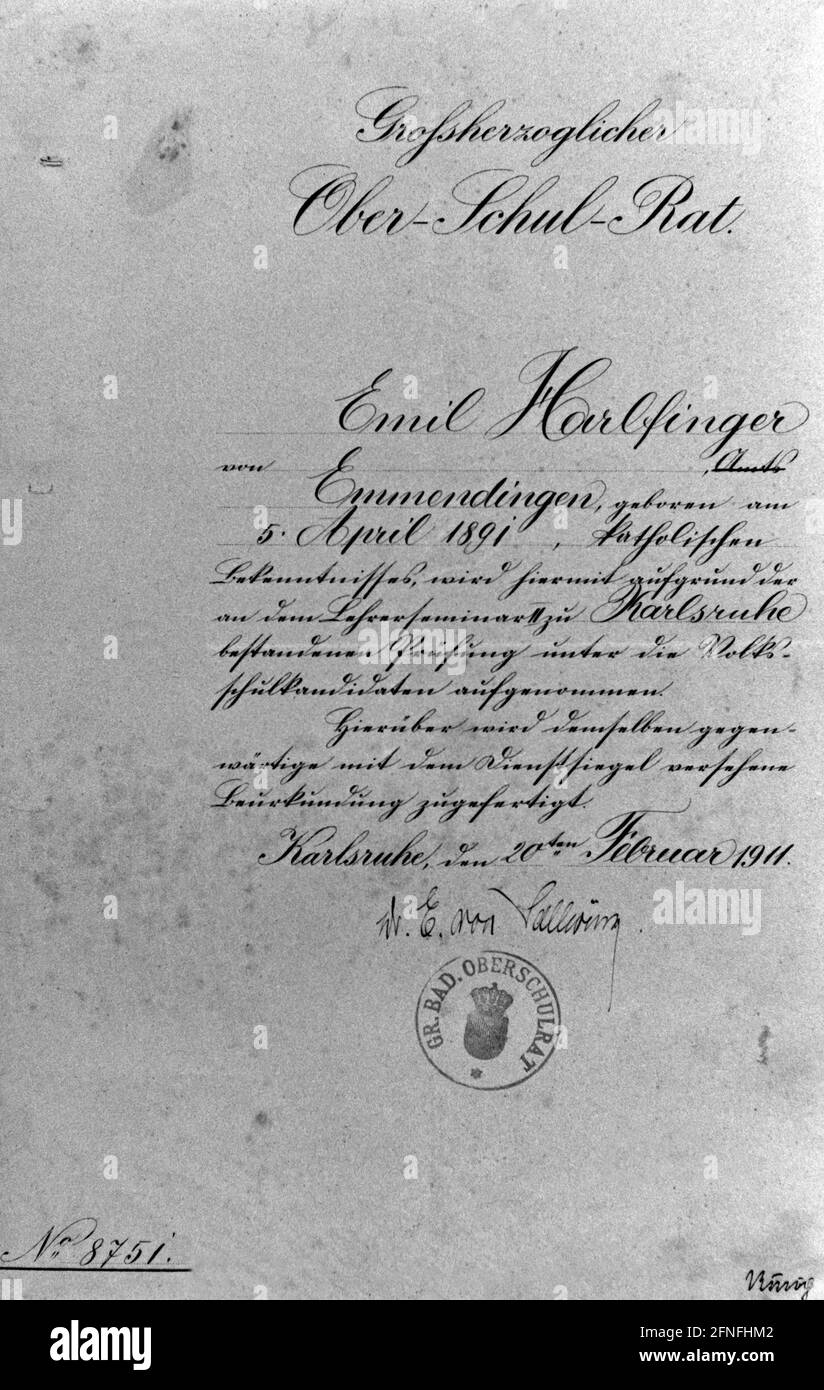 Großherzoglicher
Ober-Schul-Rat.
Emil Harlfinger
von , Amts
Emmendingen, geboren am
5. April 1891, katholischen
Bekenntnisses, wird hiermit aufgrund der
an dem Lehrerseminar II zu Karlsruhe
bestandenen Prüfung unter die Volks-
schulkandidaten aufgenommen.
Hierüber wird demselben gegen-
wärtige mit dem Dienstsiegel versehene
Beurkundung zugefertigt.
Karlsruhe, den 20ten Februar 1911.
Dr. E. von Sallwürk.
GR. BAD. OBERSCHULRAT
No 8751.
alamy
Image ID: 2FNFHM2
www.alamy.com